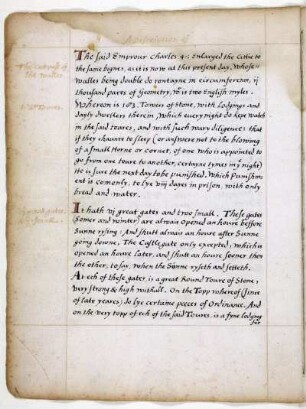 The said Emprour Charles 4: enlarged the Citie to
the same bignes, as it is now at this present day, Whose
walles being double do contayne in circumference, ij
thousand paces of Geometry, wch is two English myles.
Whereon is 183. Towers of Stone, with Lodgings and
dayly dwellers therein, Which every night do kepe Watch
in the said toures, and with such wary diligence: that
if they chaunce to sleep (or aunswere not to the sownding
of a small Horne or Cornet, of one who is appointed to
go from one toure to another, certayne tymes in ye night)
He is sure the next day to be punished. Which Punishment
is comonly, to lye viij dayes in prison, with only
bread and water.
It hath vj great gates and two small. These gates
Somer and winter, are alwais opened an houre before
Sunne rysing: And shutt alwais an houre after Sunne
going downe, The Castle gate only excepted, which is
opened an houre later, and shutt an houre sooner then
the other, to say, when the Sunne ryseth and setteth.
At ech of these gates, is a great Round Toure of Stone,
very strong & high withall. On the Topp whereof (since
of late yeares) do lye certaine peeces of Ordinance. And
on the very topp of ech of the said Toures, is a fyne lodging
for